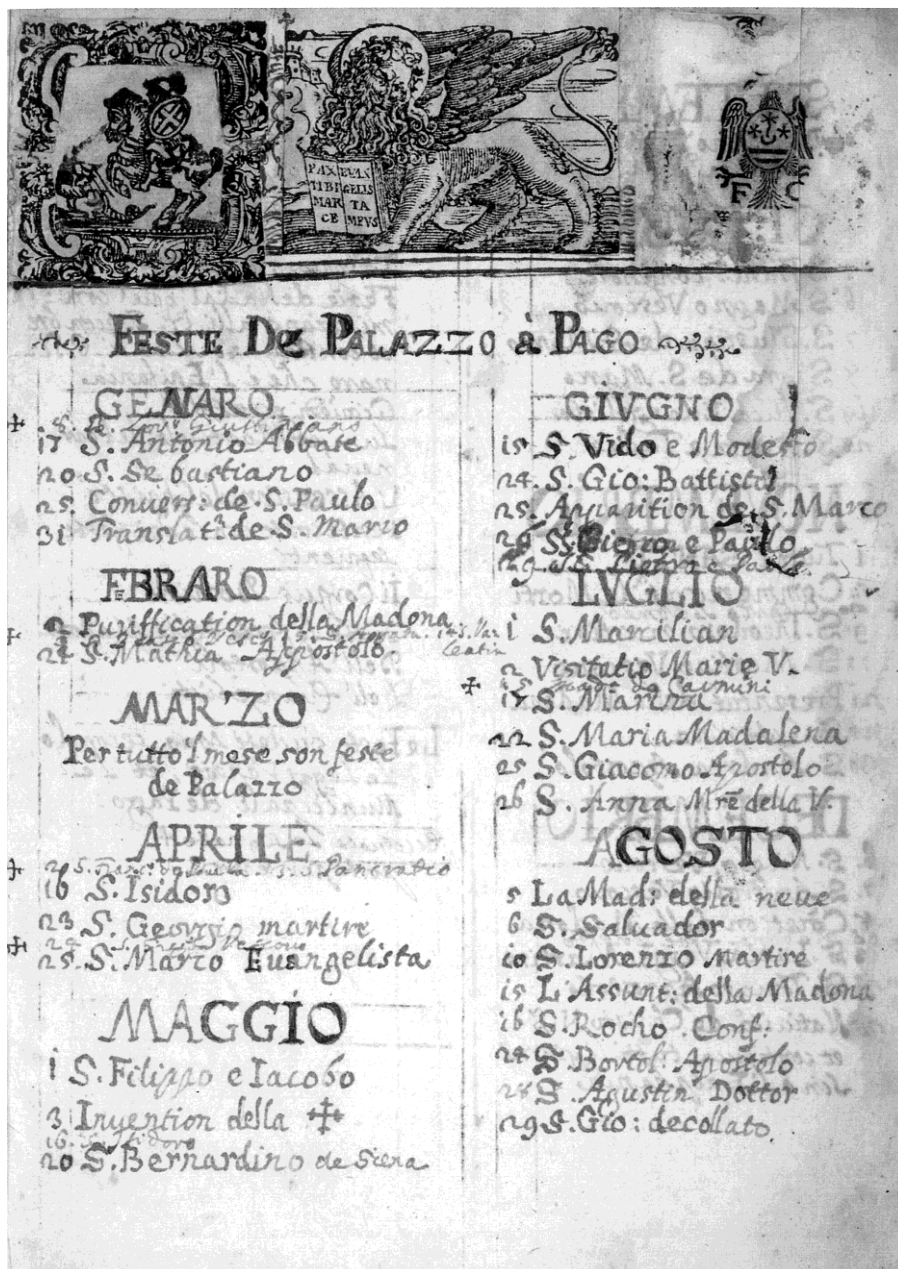 PAX
TIBI
MAR
CE
EVAN
GELIS
TA
MEVS
F C
FESTE De PALAZZO à PAGO
GENARO
17 S. Antonio Abbate
20 S. Sebastiano
25. Convers: de S. Paulo
31 Translat: de S. Marco
FEBRARO
2 Puriffication della Madona
24 S. Mathia Appostolo.
MARZO
Per tutto 'l mese son feste
de Palazzo
APRILE
S. Pancratio
16 S. Isidoro
23 S. Georgio martire
25. S. Marco Euangelista
MAGGIO
1 S. Filippo e Iacobo
3 Invention della ✝
16. S. Isidoro
20 S. Bernardino de Siena
GIVGNO
15 S. Vido e Modesto
24. S. Gio: Battista
25. Apparition de S. Marco
29 S. Pietro e Paullo
29 S.S. Pietro e Paulo
LVGLIO
1 S. Marilian
2 Visitatio Marie V.
17 S. Marina
22 S. Maria Madalena
25 S. Giacomo Apostolo
26 S. Anna Mrē della V.
AGOSTO
5 La Mad: della neue
6 S. Saluador
10 S. Lorenzo Martire
15 L'Assunt: della Madona
16 S. Rocho Conf:
24 S. Bortol: Apostolo
28 S. Agustin Dottor
29 S. Gio: decollato